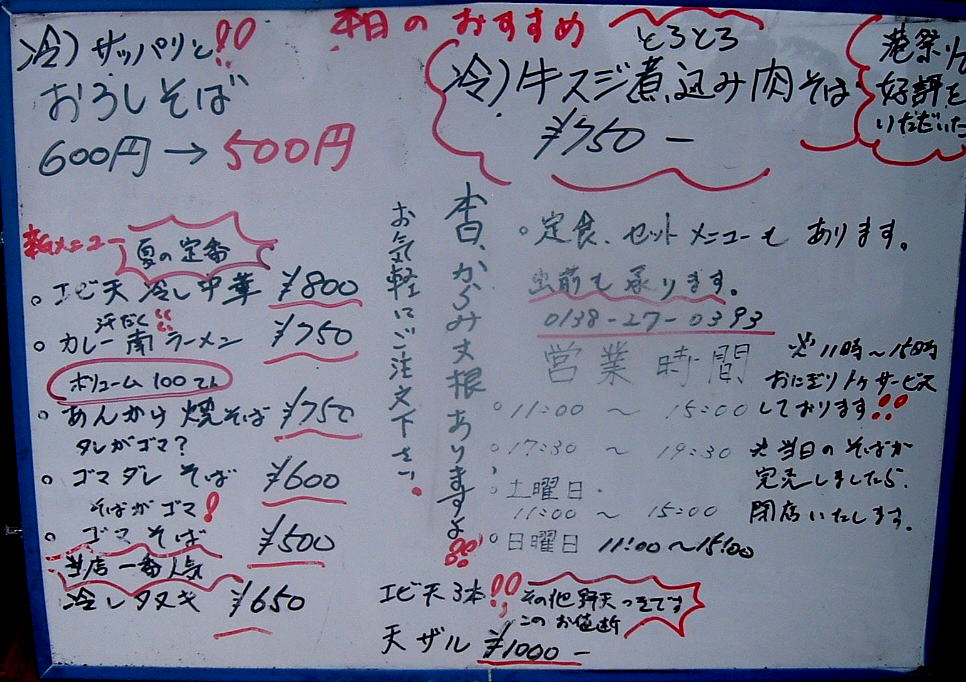 本日のおすすめ
冷)サッパリと!!
おろしそば
600円→500円
とろとろ
冷)牛スジ煮込み肉そば
¥750-
港祭りで
好評を
いただいた
新メニュー
夏の定番
。エビ天冷し中華 ¥800
汗だく!!
。カレー南ラーメン ¥750
ボリューム100てん
。あんかけ焼そば ¥750
タレがゴマ?
。ゴマダレそば ¥600
そばがゴマ!
。ゴマそば ¥500
当店一番人気
冷しタヌキ ¥650
本日、からみ大根ありますよ!!
お気軽にご注文下さい。
。定食、セットメニューも あります。
出前も承ります。
0138-27-0393
営業時間
。11:00 ～ 15:00
。17:30 ～ 19:30
。土曜日.
11:00 ～ 15:00
。日曜日 11:00～15:00
※11時～15時
おにぎり1ケサービス
しております!!
※当日のそばが
完売しましたら.
閉店いたします。
エビ天3本!!
その他野天つきです
このお値段
天ザル ¥1000-